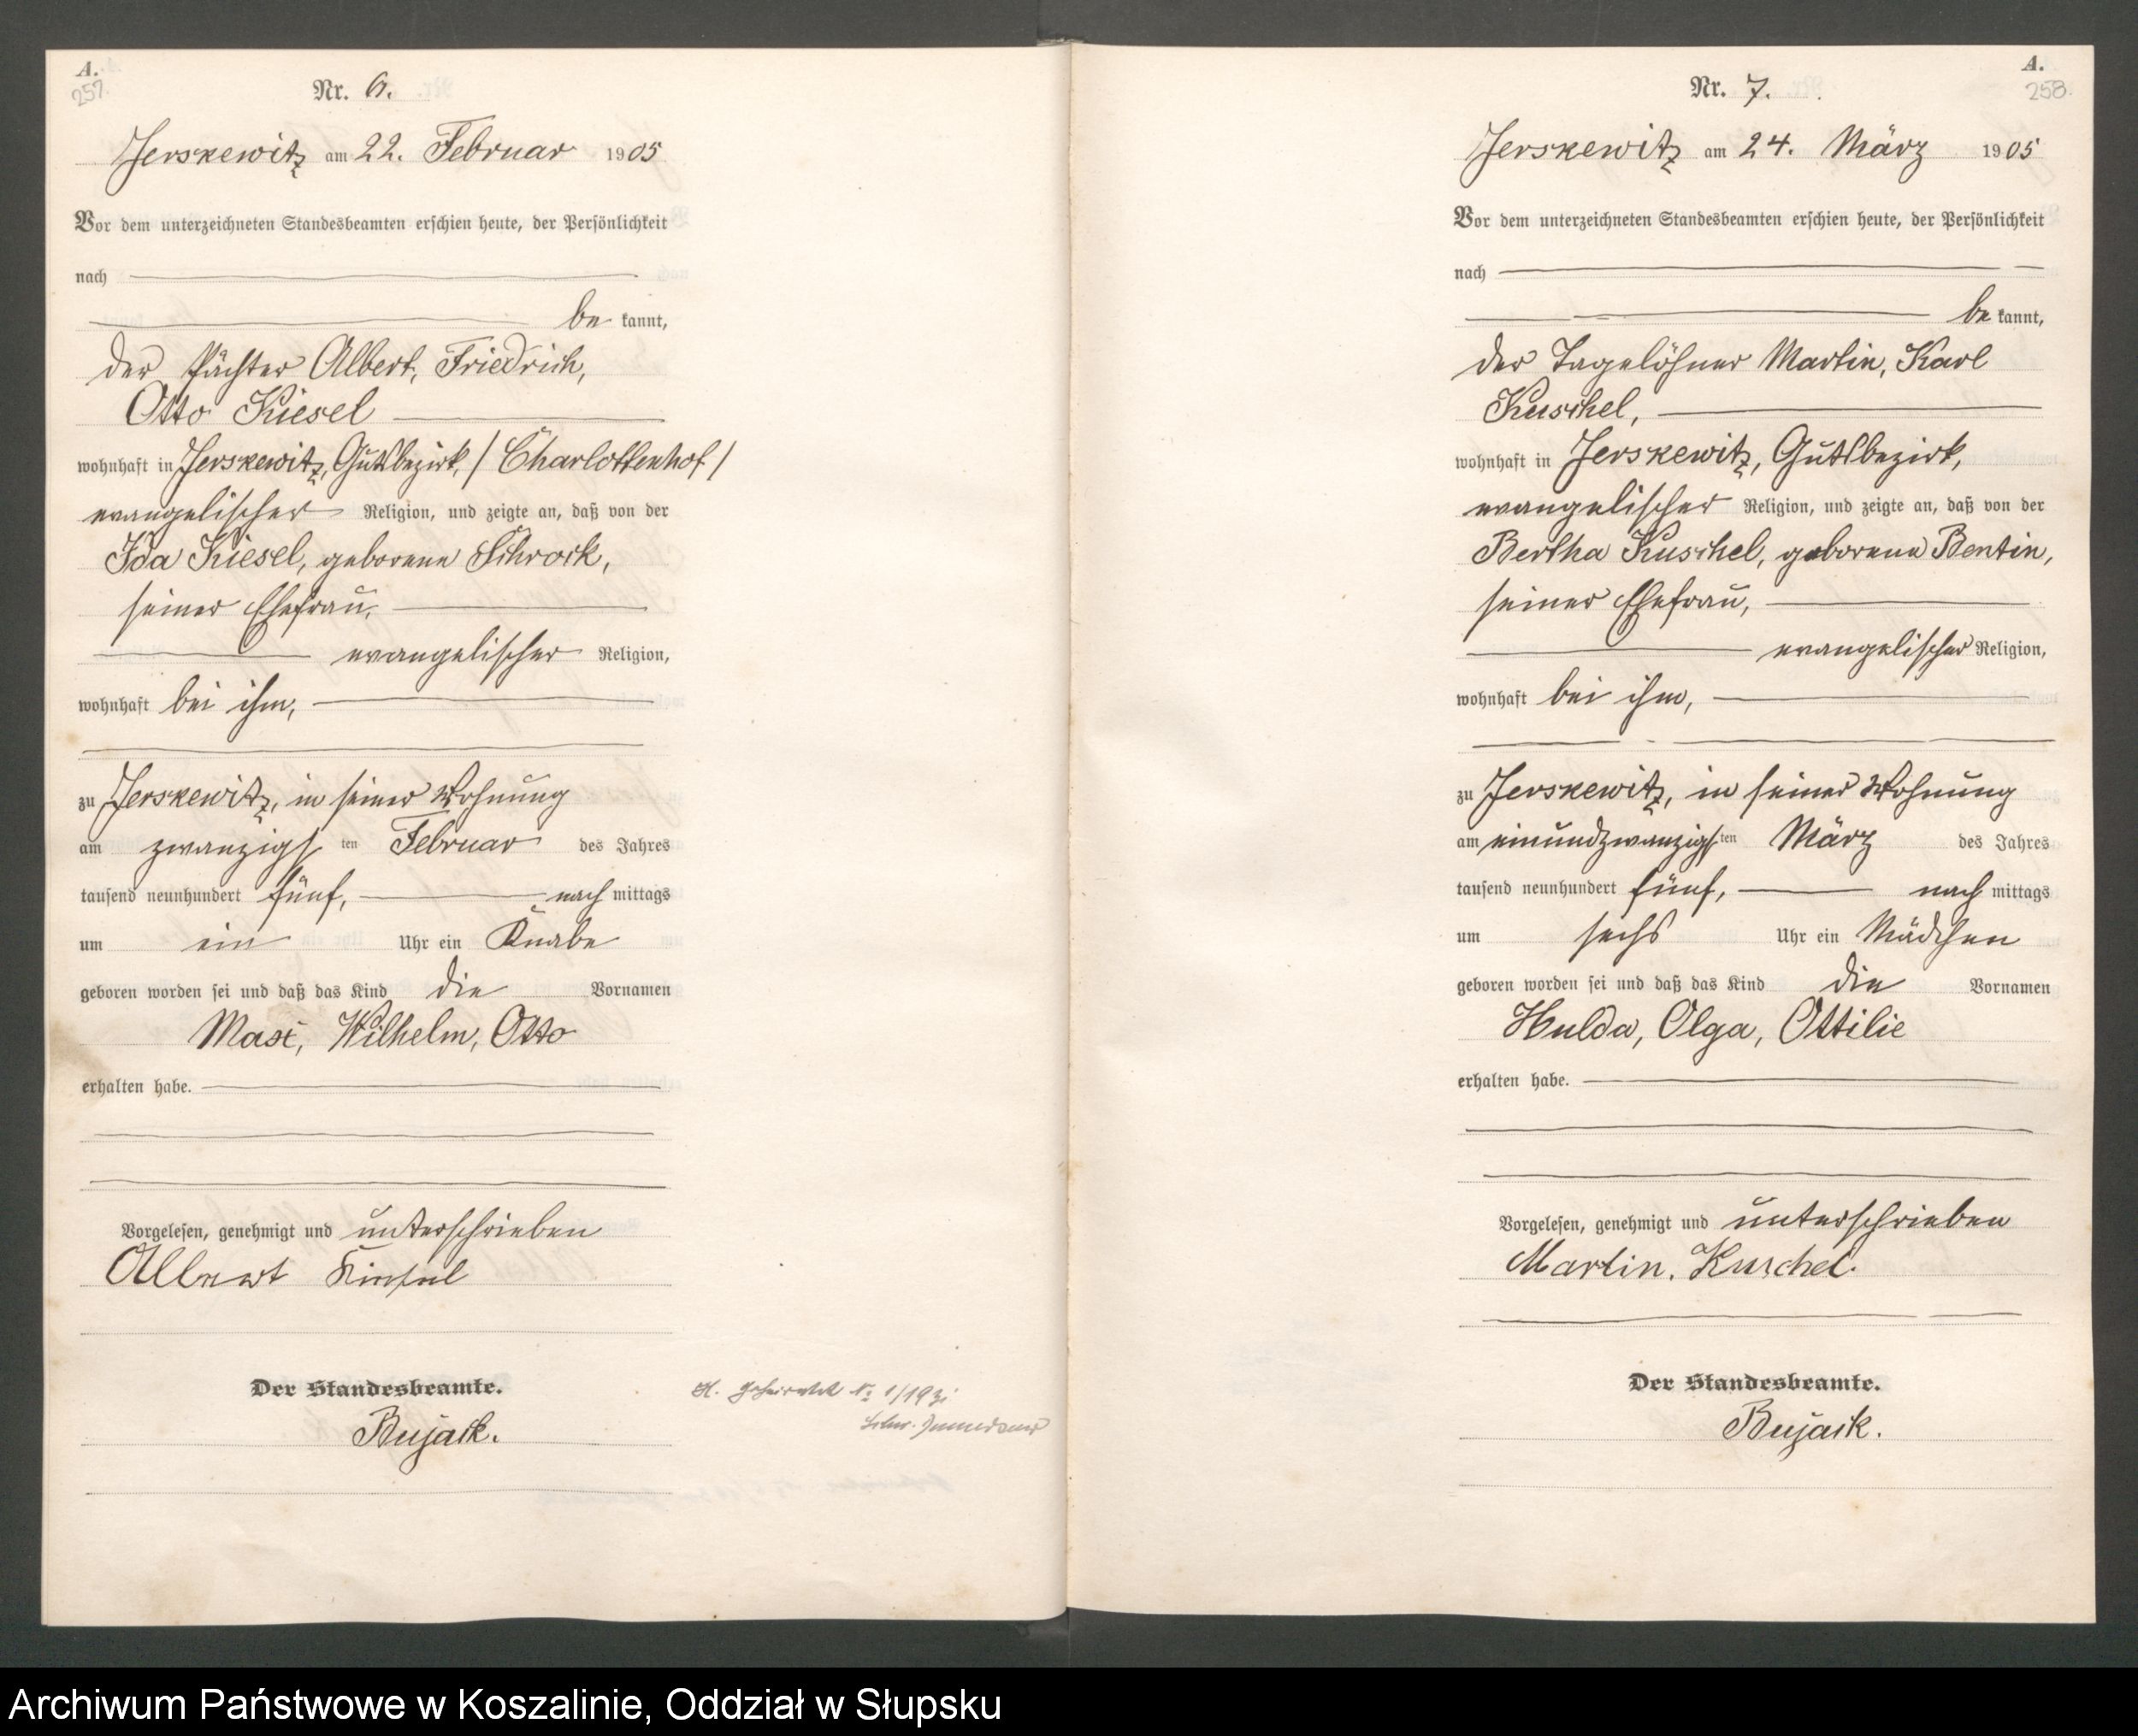 A.
257.
Nr. 6.
Jerskewitz am 22. Februar 1905
Vor dem unterzeichneten Standesbeamten erschien heute, der Persönlichkeit
nach
be kannt,
der Pächter Albert, Friedrich,
Otto Kiesel
wohnhaft in Jerskewitz, Gutsbezirk, / Charlottenhof /
evangelischer Religion, und zeigte an, daß von der
Ida Kiesel, geborene Schrock,
seiner Ehefrau,
evangelischer Religion,
wohnhaft bei ihm,
zu Jerskewitz, in seiner Wohnung
am zwanzigsten Februar des Jahres
tausend neunhundert fünf, nach mittags
um ein Uhr ein Knabe
geboren worden sei und daß das Kind die Vornamen
Max, Wilhelm, Otto
erhalten habe.
Vorgelesen, genehmigt und unterschrieben
Albert Kiesel
Der Standesbeamte.
Bujack.
A.
258.
Nr. 7.
Jerskewitz am 24. März 1905
Vor dem unterzeichneten Standesbeamten erschien heute, der Persönlichkeit
nach
be kannt,
der Tagelöhner Martin, Karl
Kuschel,
wohnhaft in Jerskewitz, Gutsbezirk,
evangelischer Religion, und zeigte an, daß von der
Bertha Kuschel, geborene Bentin,
seiner Ehefrau,
evangelischer Religion,
wohnhaft bei ihm,
zu Jerskewitz, in seiner Wohnung
am einundzwanzigsten März des Jahres
tausend neunhundert fünf, nach mittags
um sechs Uhr ein Mädchen
geboren worden sei und daß das Kind die Vornamen
Hulda, Olga, Ottilie
erhalten habe.
Vorgelesen, genehmigt und unterschrieben
Martin. Kuschel.
Der Standesbeamte.
Bujack.
Archiwum Państwowe w Koszalinie, Oddział w Słupsku